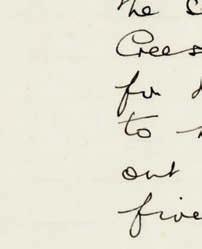 the
Crees
for
to
out
five